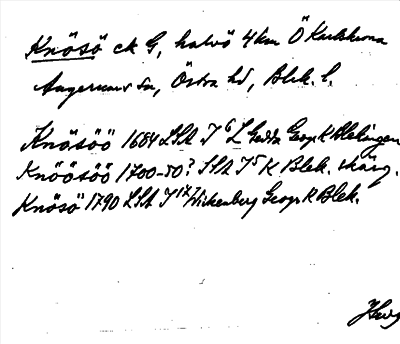 Knösö ek G, halvö 4 km Ö Karlskrona
Augerums sn, Östra hd, Blek. l.
Knösöö 1684 LSA T 6 L Gedda Geogr K Blekingen
Knöösöö 1700-50? SSA T 5 K Blek. skärg.
Knösö 1790 LSA T 127 Wickenberg Geogr K Blek.